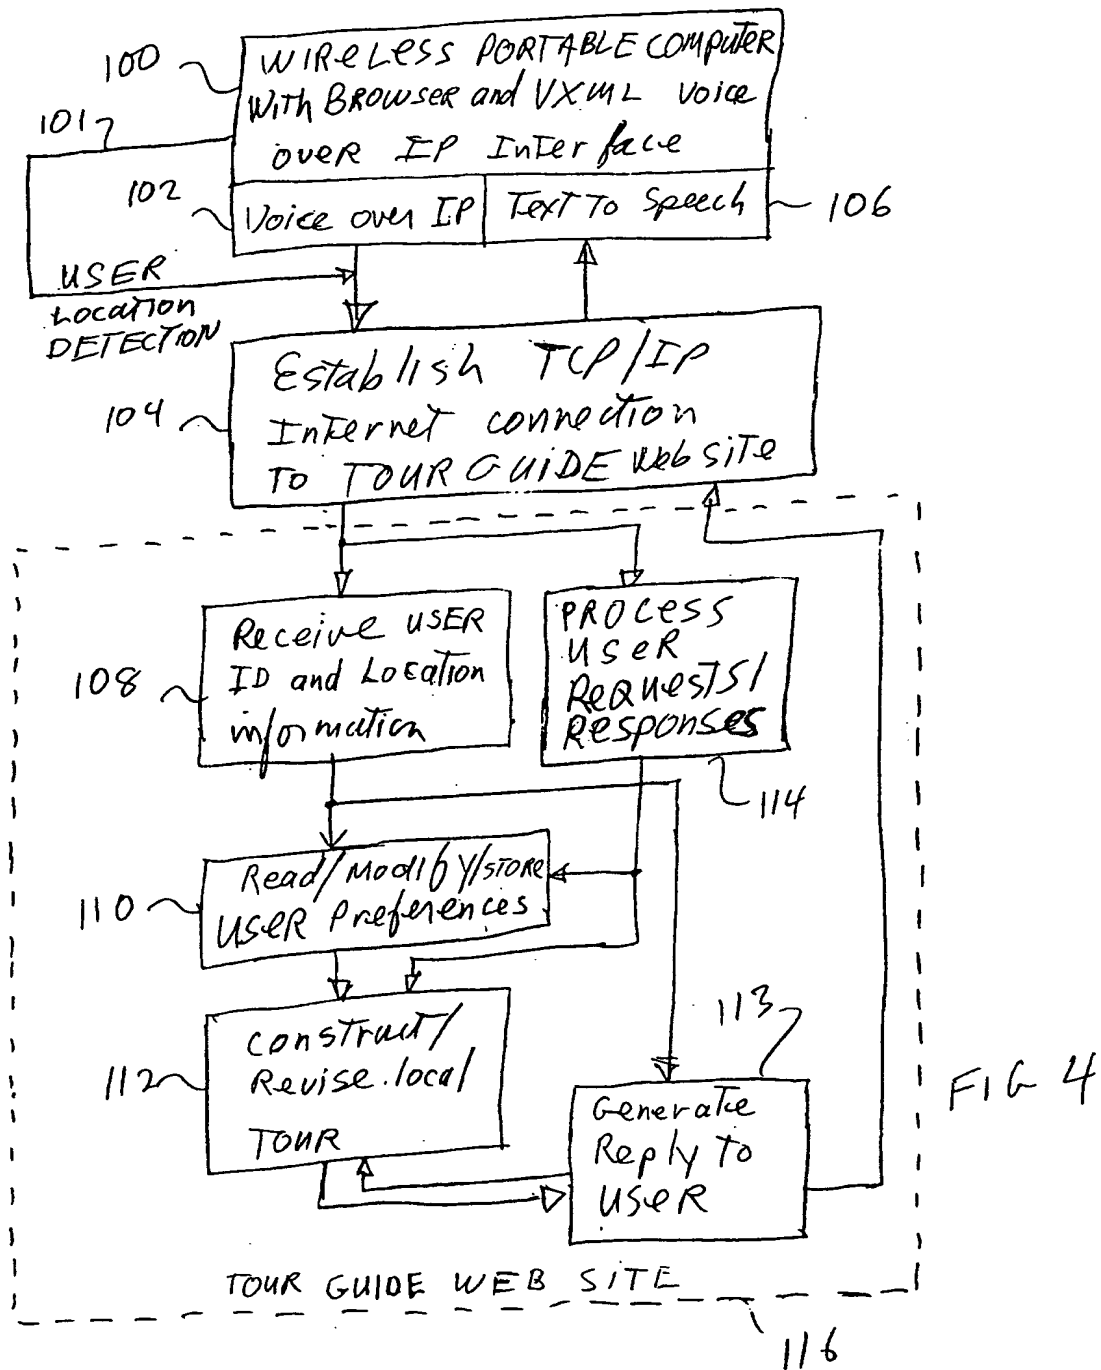 100
WIRELESS PORTABLE COMPUTER
With BROWSER and VXML voice
over IP Interface
101
102
Voice over IP
Text To Speech
106
USER
Location
DETECTION
Establish TCP/IP
Internet connection
To TOUR GUIDE Web site
104
Receive USER
ID and Location
information
108
PROCESS
USER
Requests/
Responses
114
Read/Modify/STORE
USER Preferences
110
construct/
Revise local
TOUR
112
113
Generate
Reply to
USER
FIG 4
TOUR GUIDE WEB SITE
116